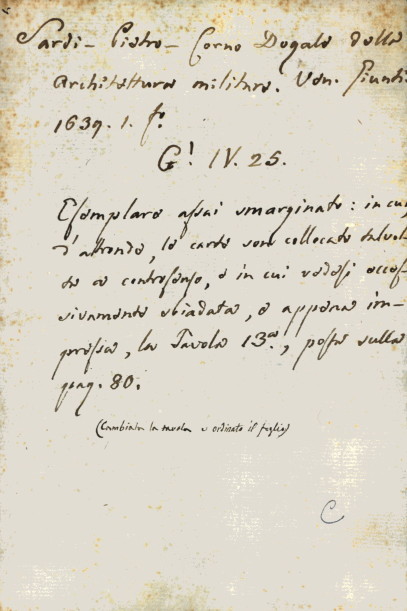 Sardi - Pietro - Corno Dogale della
Architettura militare. Ven. Giunti.
1639. 1. f.º
G! IV. 25.
Esemplare assai smarginato: in cui,
d'altronde, le carte son collocate talvol-
ta a controsenso, e in cui vedesi ecces-
sivamente sbiadata, e appena im-
pressa, la Tavola 13.ª, posta sulla
pag. 80.
(Cambiata la tavola e ordinato il foglio)
C